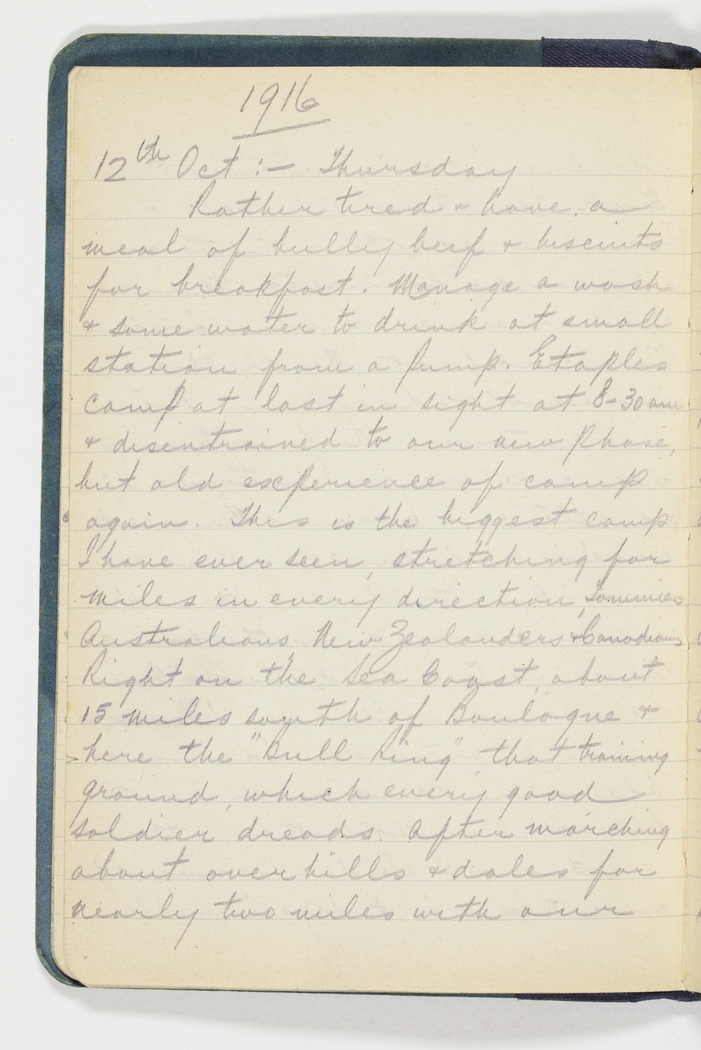 1916
12th Oct :- Thursday
Rather tired & have a
meal of bully beef & biscuits
for breakfast. Manage a wash
& some water to drink at small
station from a pump. Etaples
camp at last in sight at 8-30 am
& disentrained to our new phase,
but old experience of camp
again. This is the biggest camp
I have ever seen, stretching for
miles in every direction, Tommies
Australians New Zealanders & Canadians
Right on the Sea Coast, about
15 miles south of Boulogne &
here the "Bull Ring" that training
ground, which every good
soldier dreads. After marching
about over hills & dales for
nearly two miles with our